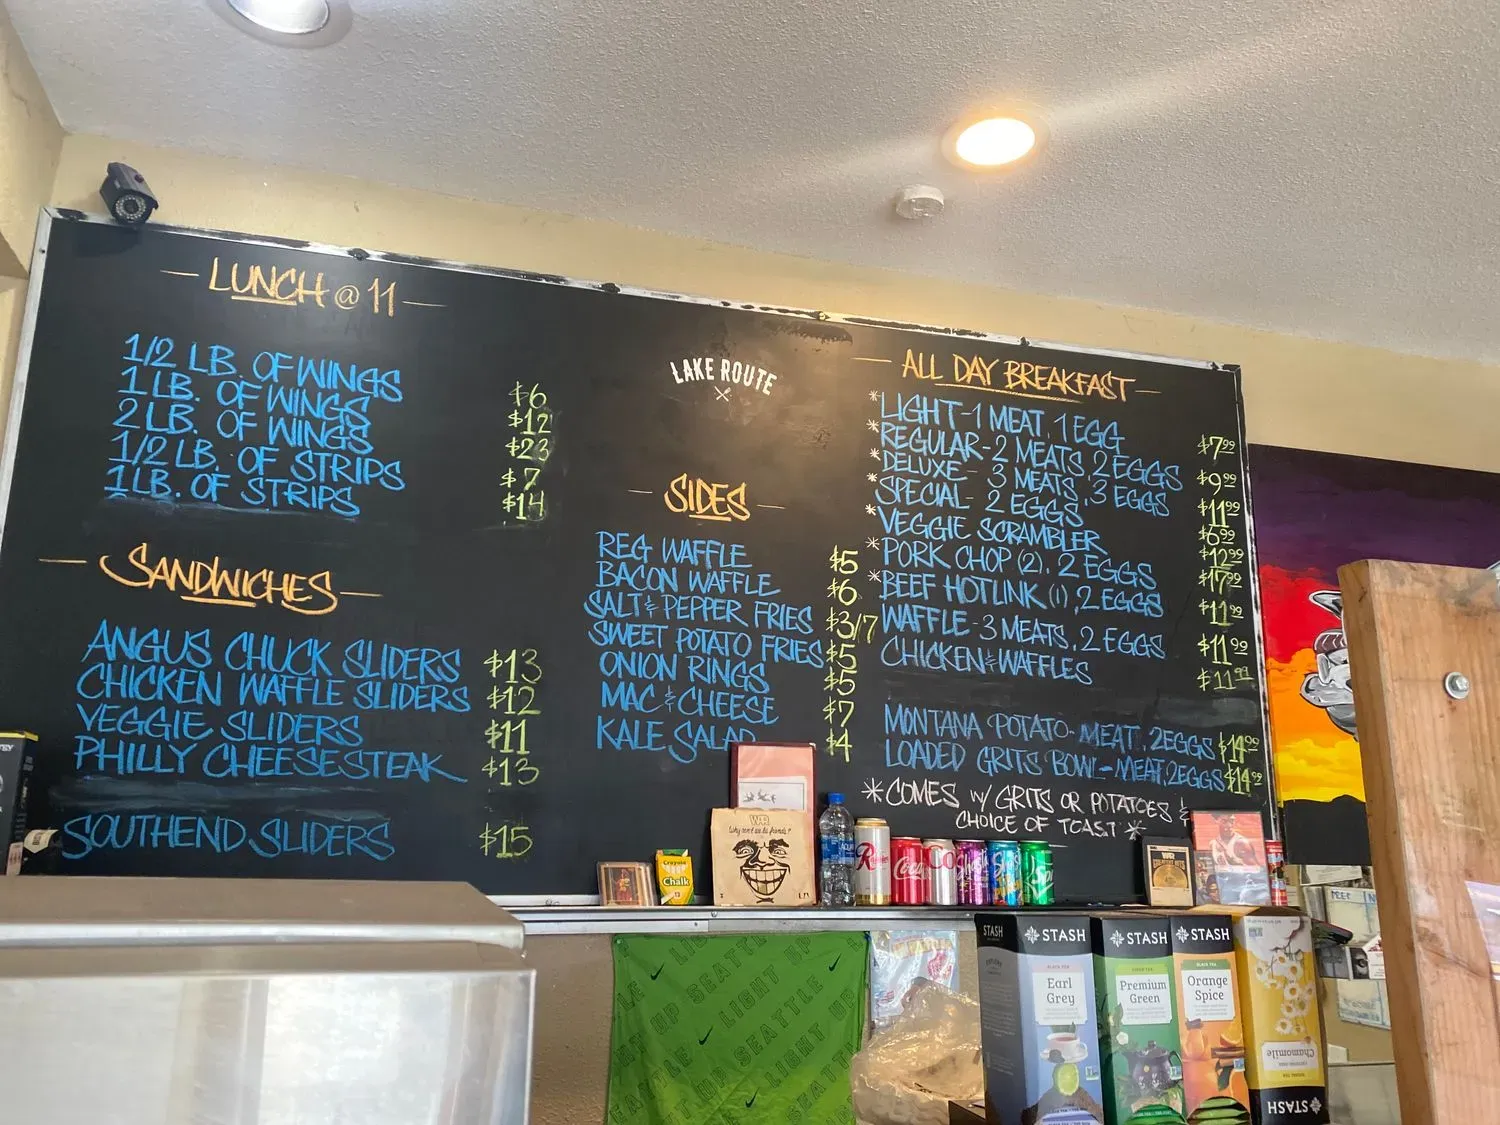 LUNCH @ 11
1/2 LB. OF WINGS $6
1 LB. OF WINGS $12
2 LB. OF WINGS $23
1/2 LB. OF STRIPS $7
1 LB. OF STRIPS $14
SANDWICHES
ANGUS CHUCK SLIDERS $13
CHICKEN WAFFLE SLIDERS $12
VEGGIE SLIDERS $11
PHILLY CHEESESTEAK $13
SOUTHEND SLIDERS $15
LAKE ROUTE
SIDES
REG WAFFLE $5
BACON WAFFLE $6
SALT & PEPPER FRIES $3/7
SWEET POTATO FRIES $5
ONION RINGS $5
MAC & CHEESE $7
KALE SALAD $4
ALL DAY BREAKFAST
*LIGHT-1 MEAT. 1 EGG $7.99
*REGULAR-2 MEATS, 2 EGGS $9.99
*DELUXE - 3 MEATS, 3 EGGS $11.99
*SPECIAL- 2 EGGS $6.99
*VEGGIE SCRAMBLER $12.99
*PORK CHOP (2), 2 EGGS $17.99
*BEEF HOTLINK (1), 2 EGGS $11.99
WAFFLE-3 MEATS, 2 EGGS $11.99
CHICKEN & WAFFLES $11.99
MONTANA POTATO-MEAT, 2EGGS $14.99
LOADED GRITS BOWL-MEAT, 2EGGS $14.99
*COMES W/ GRITS OR POTATOES &
CHOICE OF TOAST*
Crayola
Chalk
Why can't we be friends?
WAR
GREATEST HITS
STASH
STASH
BLACK TEA
Earl
Grey
STASH
GREEN TEA
Premium
Green
STASH
BLACK TEA
Orange
Spice
Chamomile
STASH
SEATTLE
LIGHT UP
SEATTLE
LIGHT UP